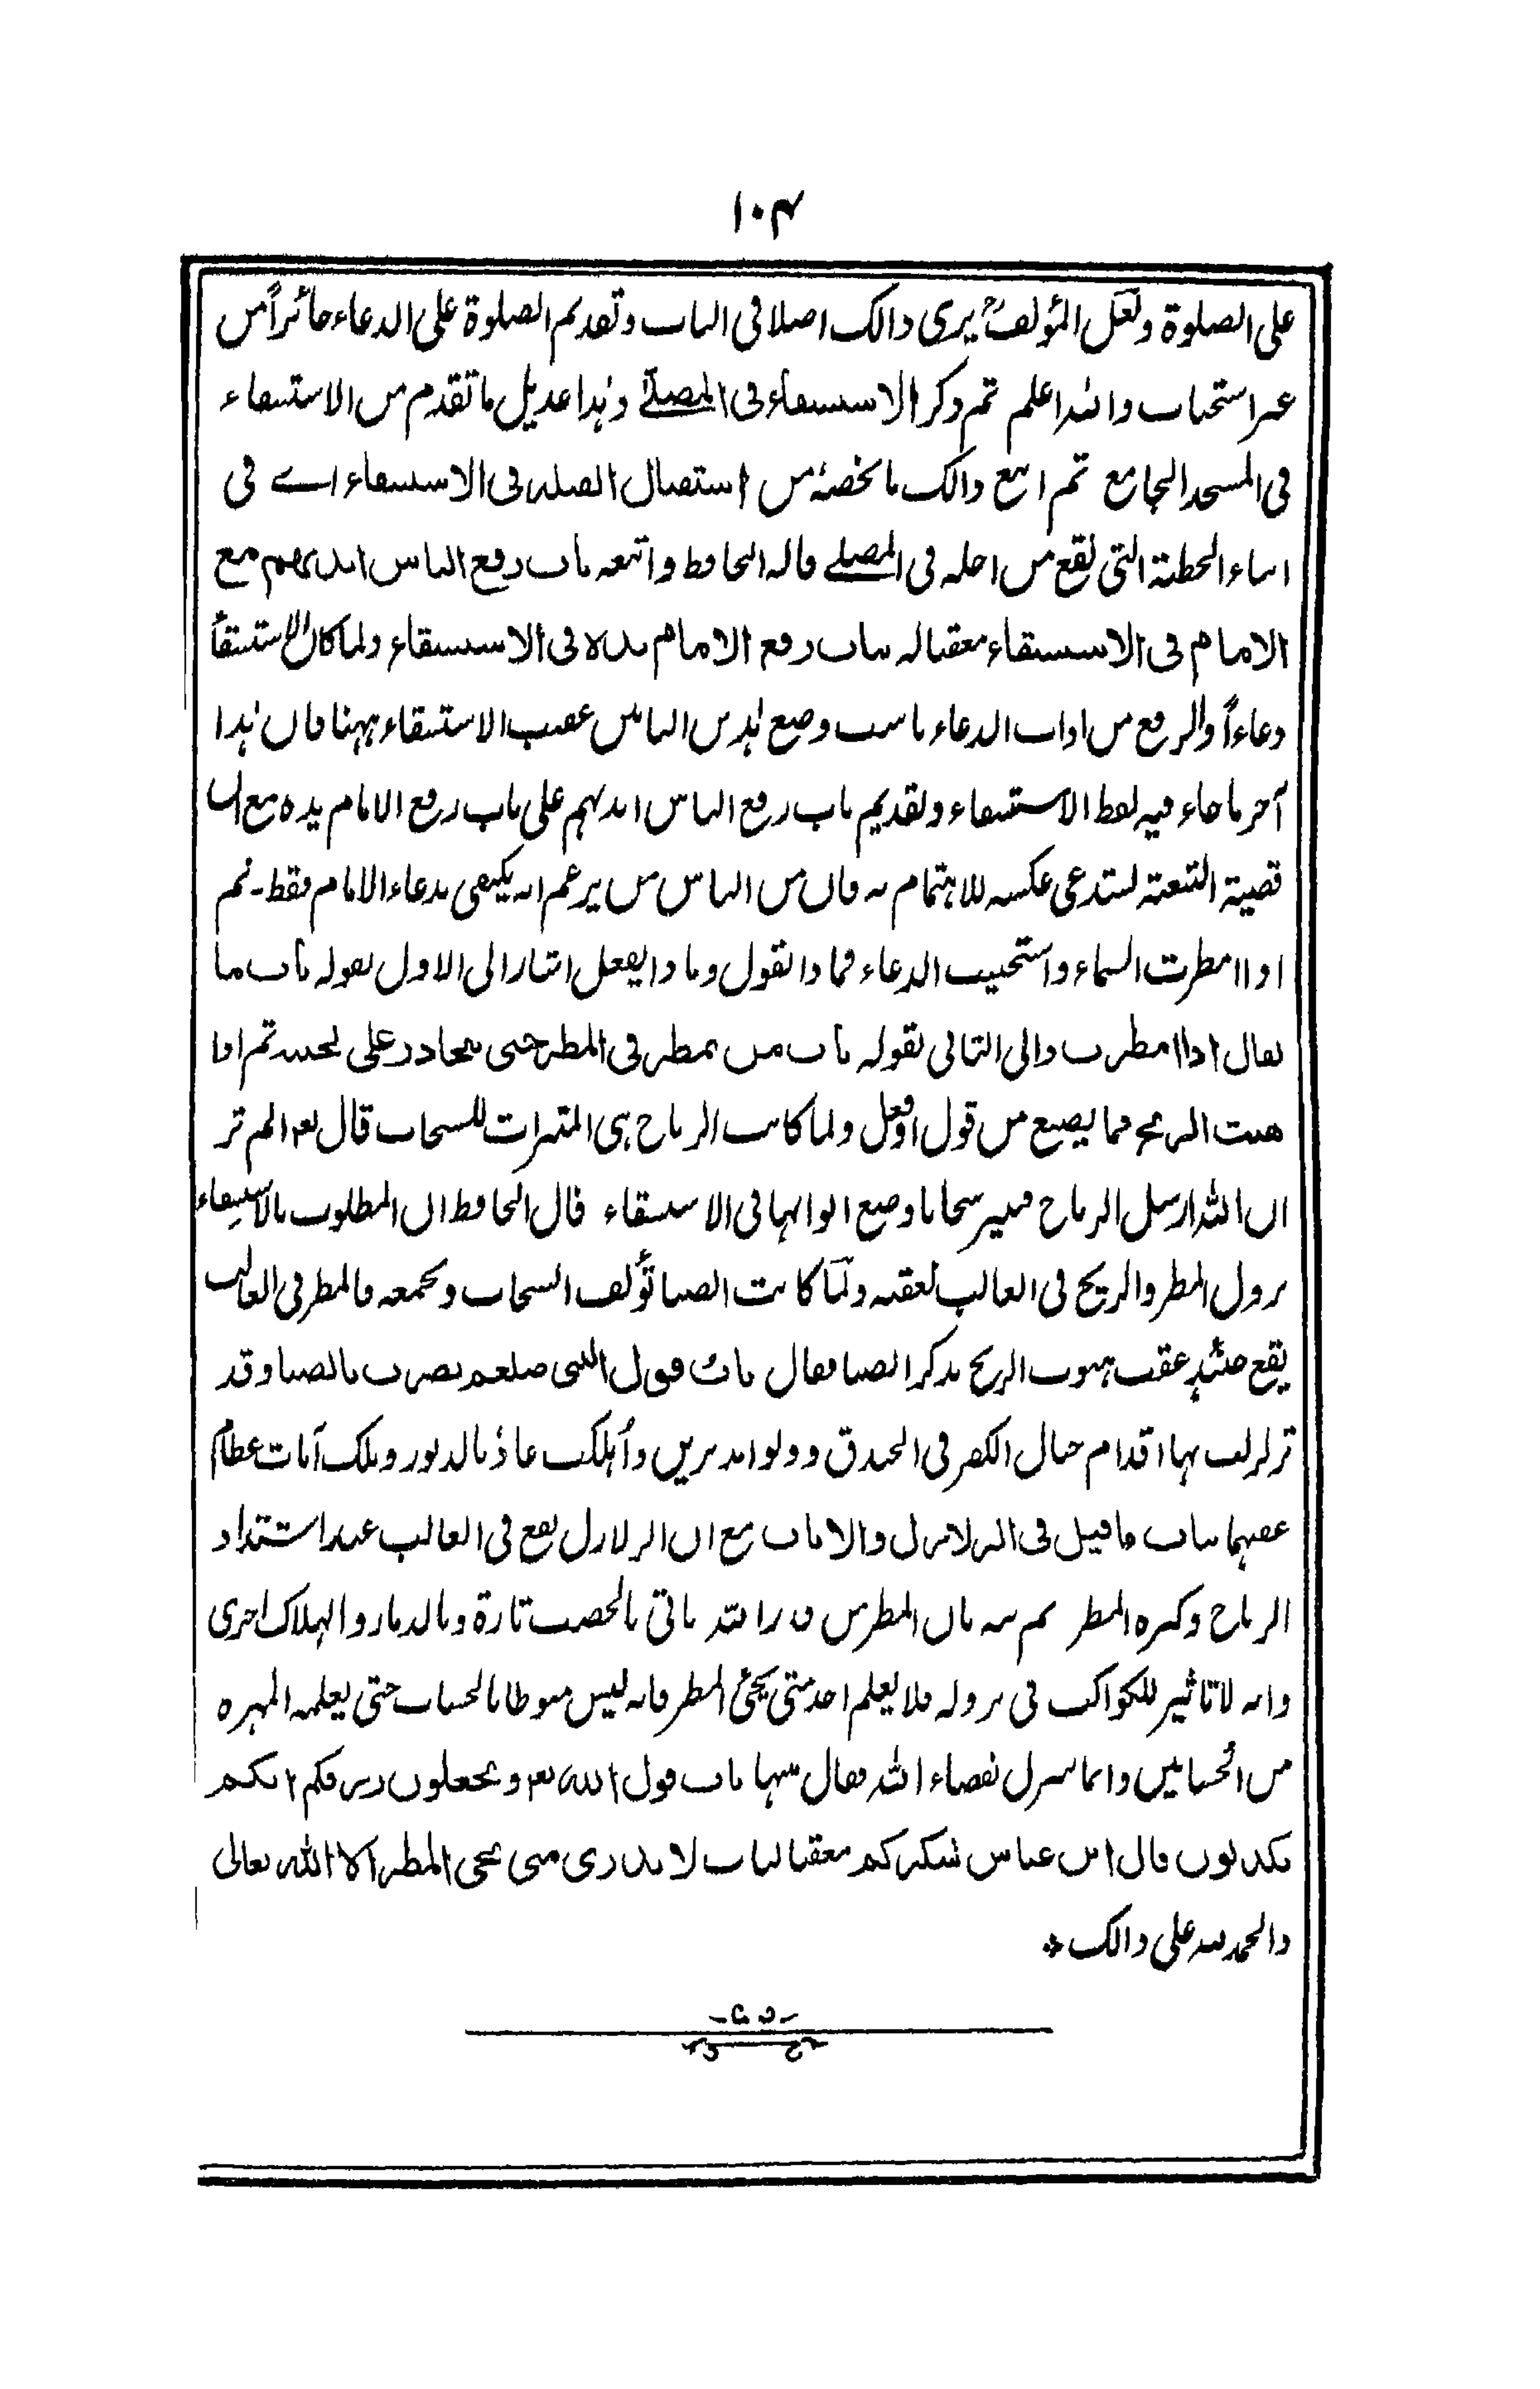 ١٠٤
على الصلوة ولعل المؤلف يرى ذالك اصلا في الباب وتقديم الصلوة على الدعاء جائزاً من
غير استحباب والله اعلم ثم ذكر الاستسقاء في المصلى وهذا عديل ما تقدم من الاستسقاء
في المسجد الجامع ثم اتبع ذالك ما يخصه من استقبال القبلة في الاستسقاء اے في
اثناء الخطبة التي تقع من اجله في المصلے قاله الحافظ واتبعه باب رفع الناس ايديهم مع
الامام في الاستسقاء معقبا له بباب رفع الامام يده في الاستسقاء ولما كان الاستسقاء
دعاءاً والرفع من اداب الدعاء ناسب وضع هذين البابين عقيب الاستسقاء ههنا فان هذا
آخر ما جاء فيه لفظ الاستسقاء وتقديم باب رفع الناس ايديهم على باب رفع الامام يده مع ان
قضية التبعية تستدعي عكسه للاهتمام به فان من الناس من يزعم انه يكتفى بدعاء الامام فقط - ثم
اذا امطرت السماء واستجيب الدعاء فماذا نقول وماذا يفعل اشار الى الاول بقوله باب ما
يقال اذا امطرت والى الثاني بقوله باب من تمطر في المطر حتى يتحادر على لحيته ثم اذا
هبت الريح فما يصنع من قول او فعل ولما كانت الرياح هي المثيرات للسحاب قال تعم الم تر
ان الله ارسل الرياح فتثير سحابا وضع ابوابها في الاستسقاء قال الحافظ ان المطلوب بالاستسقاء
نزول المطر والريح في الغالب تعقبه ولمّا كانت الصبا تؤلف السحاب وتجمعه فالمطر في الغالب
يقع حينئذٍ عقب هبوب الريح بذكر الصبا فقال باب قول النبي صلعم نصرت بالصبا وقد
تزلزلت بها اقدام جبال الكفر في الخندق وولوا مدبرين وأهلكت عاد بالدبور وتلك آيات عظام
عقبهما بباب ما قيل في الزلازل والايات مع ان الزلازل تقع في الغالب عند اشتداد
الرياح وكثرة المطر ثم نبه بان المطر من قدر الله ياتي بالخصب تارة وبالدمار والهلاك اخرى
وانه لا تاثير للكواكب في نزوله فلا يعلم احد متى يجئ المطر فانه ليس منوطا بالحساب حتى يعلمه المهرة
من الحسابين وانما ينزل بقضاء الله فقال منبها باب قول الله تعم وتجعلون رزقكم انكم
تكذبون قال ابن عباس شكركم معقبا لباب لا يدري متى يجئ المطر الا الله تعالى
والحمد لله على ذالك